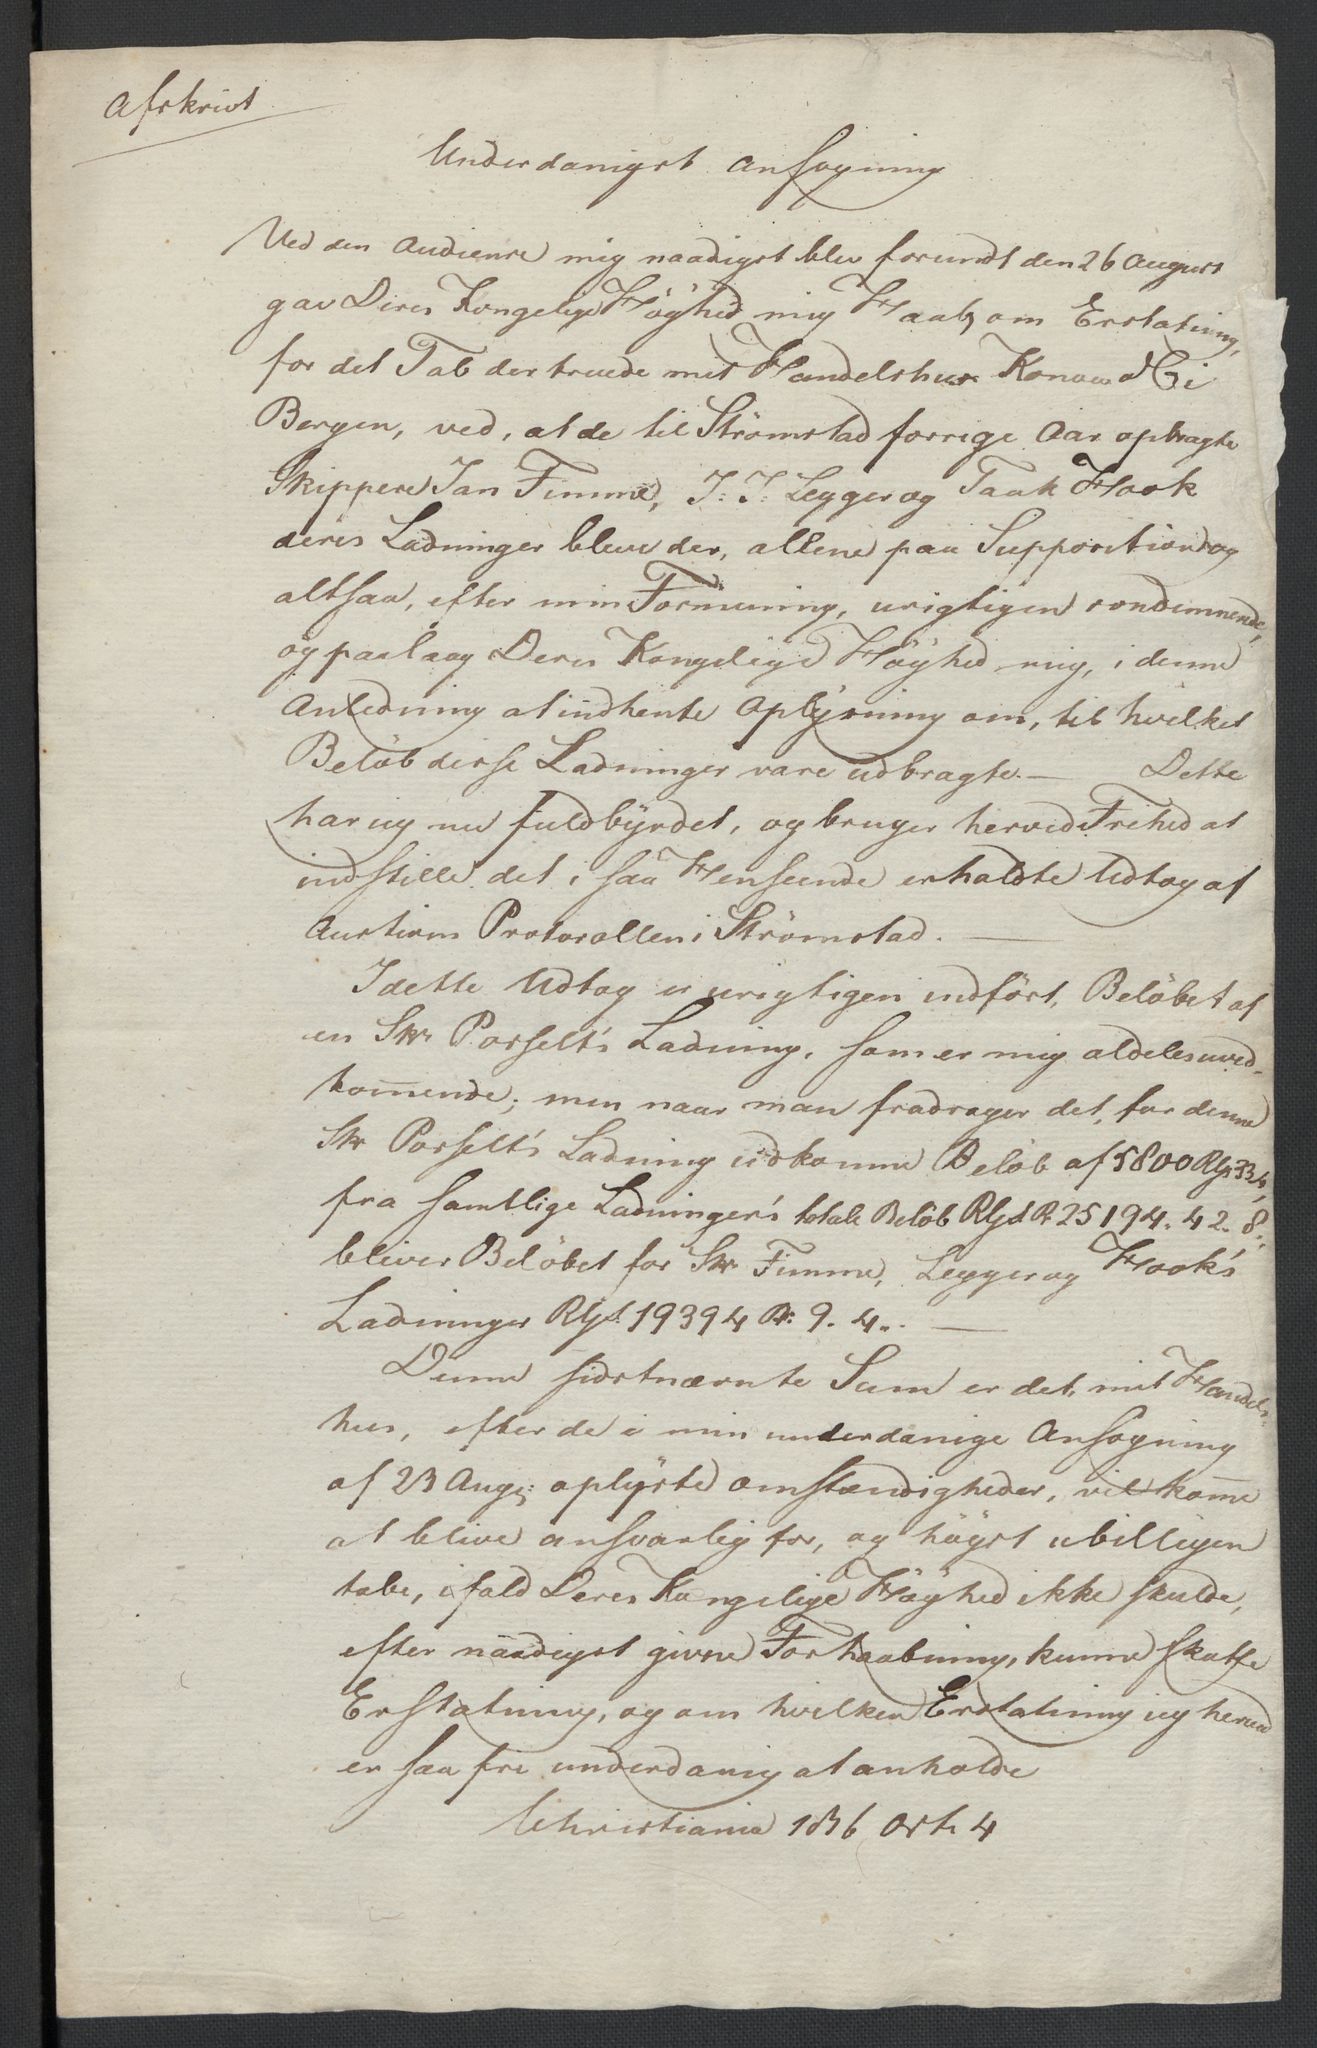 Afskrivt
Underdanigst Ansøgning
Ved den Audience mig naadigst blev forundt den 26 August
gav Deres Kongelige Höyhed mig Haab om Erstatning,
for det Tab der truede mit Handelshuus Konow & C i
Bergen, ved, at de til Strömstad forrige Aar opbragte
Skippere Jan Fimme, J: J: Legger og Taak Hook
deres Ladninger bleve der, allene paa Supposition og
altsaa, efter min Formening, urigtigen condemnerede,
og paalaag Deres Kongelige Höyhed mig, i denne
Anledning at indhente Oplysning om, til hvilket
Belöb disse Ladninger vare udbragte. — Dette
har ieg nu fuldbyrdet, og bruger herved Frihed at
indstille det i saa Henseende erholdte Udtog af
Auctions Protocollen i Strömstad. —
I dette Udtog er urigtigen indfört, Belöbet af
en Skr Posselt's Ladning, som er mig aldeles uved-
kom̄ende; men naar man fradrager det, for denne
Skr Posselt's Ladning udkomne Belöb af 5800 Rgs 33 4,
fra samtlige Ladninger's totale Belöb Rgsd Rr 25194. 42. 8.
bliver Belöbet for Skr Fimme, Legger og Hook's
Ladninger Rgsd 19394 Rr 9. 4. —
Denne sidstnævnte Sum er det, mit Handels-
hus, efter de i min underdanige Ansøgning
af 23 Aug: oplyste Omstændigheder, vil kom̄e
at blive ansvarlig for, og höyst ubilligen
tabe, ifald Deres Kongelige Höyhed ikke skulde,
efter naadigst givne Forhaabning, kunne skaffe
Erstatning, og om hvilken Erstatning ieg herved
er saa frie underdanig at anholde
Christiania 1816 Oct. 4